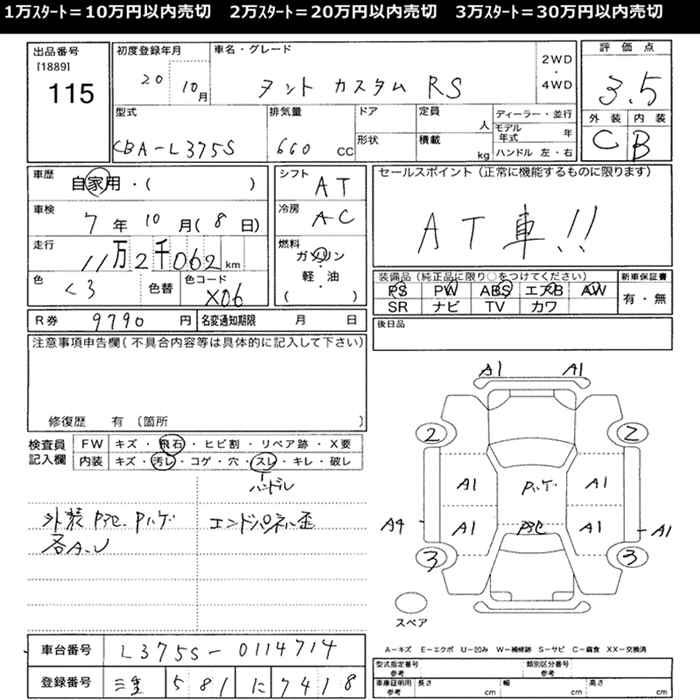 1万ｽﾀｰﾄ＝10万円以内売切　2万ｽﾀｰﾄ＝20万円以内売切　3万ｽﾀｰﾄ＝30万円以内売切
出品番号
[1889]
115
初度登録年月
20 10月
車名・グレード
タント カスタム RS
2WD
・
4WD
評価点
3.5
外装 内装
C B
型式
CBA-L375S
排気量
660 CC
ドア
形状
定員
人
積載
kg
ディーラー・並行
モデル年式 年
ハンドル 左・右
車歴
自家用・( )
車検
7年10月(8日)
走行
11万2千062km
色
くろ
色替
色コード
X06
シフト
AT
冷房
AC
燃料
ガソリン
・
軽・油
( )
セールスポイント（正常に機能するものに限ります）
AT車!!
装備品（純正品に限り○をつけてください）
PS PW ABS エアB AW
SR ナビ TV カワ
新車保証書
有・無
R券 9790円
名変通知期限 月 日
後日品
注意事項申告欄(不具合内容等は具体的に記入して下さい)
修復歴 有 〔箇所 〕
検査員
記入欄
FW キズ・飛石・ヒビ割・リペア跡・X要
内装 キズ・汚レ・コゲ・穴・スレ・キレ・破レ
ハンドル
外装 P
各A.U
エンドパネル歪
A1 A1
2 2
A1 A1
A4 A1 A1 A1
3 3
スペア
A－キズ E－エクボ U－凹み W－補修跡 S－サビ C－腐食 XX－交換済
車台番号 L375S-0114714
登録番号 三重 581 に 7418
型式指定番号
参考
類別区分番号
参考
車庫証明用
参考
長さ cm 幅 cm 高さ cm